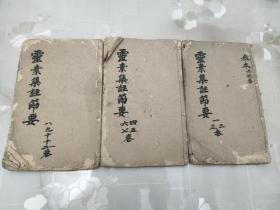 靈素集註節要
一二三卷
靈素集註節要
四五六七卷
靈素集註節要
八九十十一卷